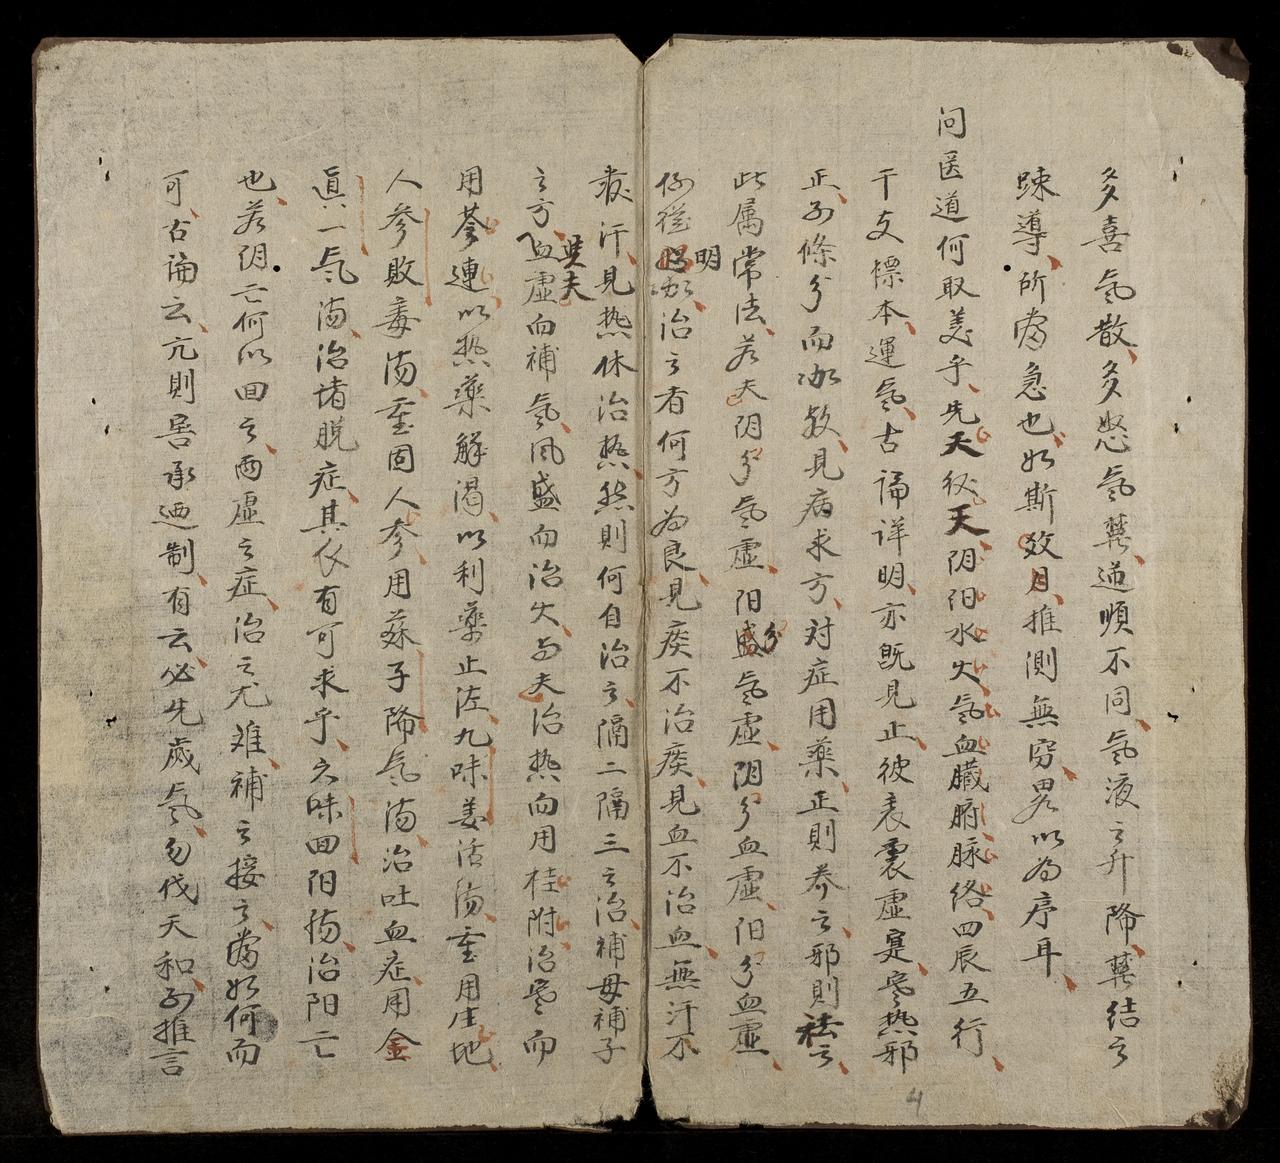 多喜氣散、多怒氣欝、逆順不同、氣液之升降、欝結之
踈導、所當急也、如斯效月、推測無窮、畧以為序耳、
问医道何取羙乎、先天後天、阴阳水火、氣血臟腑脉络、四辰五行、
干支標本、運氣、古論详明、亦既見止、彼表裏虛寔寒热邪
正、列條分而加数、見病求方、対症用藥、正則养之、邪則祛之、
此属常法、若夫阴分氣虛、阳分氣虛、阴分血虛、阳分血虛、
盛
例從明加、治之者何方為良、見痰不治痰、見血不治血、無汗不
發汗、見热休治热、然則何自治之、隔二隔三之治、補毋補子
之方、與夫血虛而補氣、风盛而治火、与夫治热向用桂附、治寒而
用芩連、以热藥解渴、以利藥止泣、九味羌活汤、重用生地、
人參敗毒汤、重固人參、用蘇子降气汤、治吐血症、用金
眞一気汤、治堵脱症、其依有可求乎、六味回阳揚、治阳亡
也、若阴亡何以回之、両虛之症、治之尤难、補之接之、當如何而
可、古論云、亢則害承迺制、有云、必先歲氣、勿伐天和、列推言
4